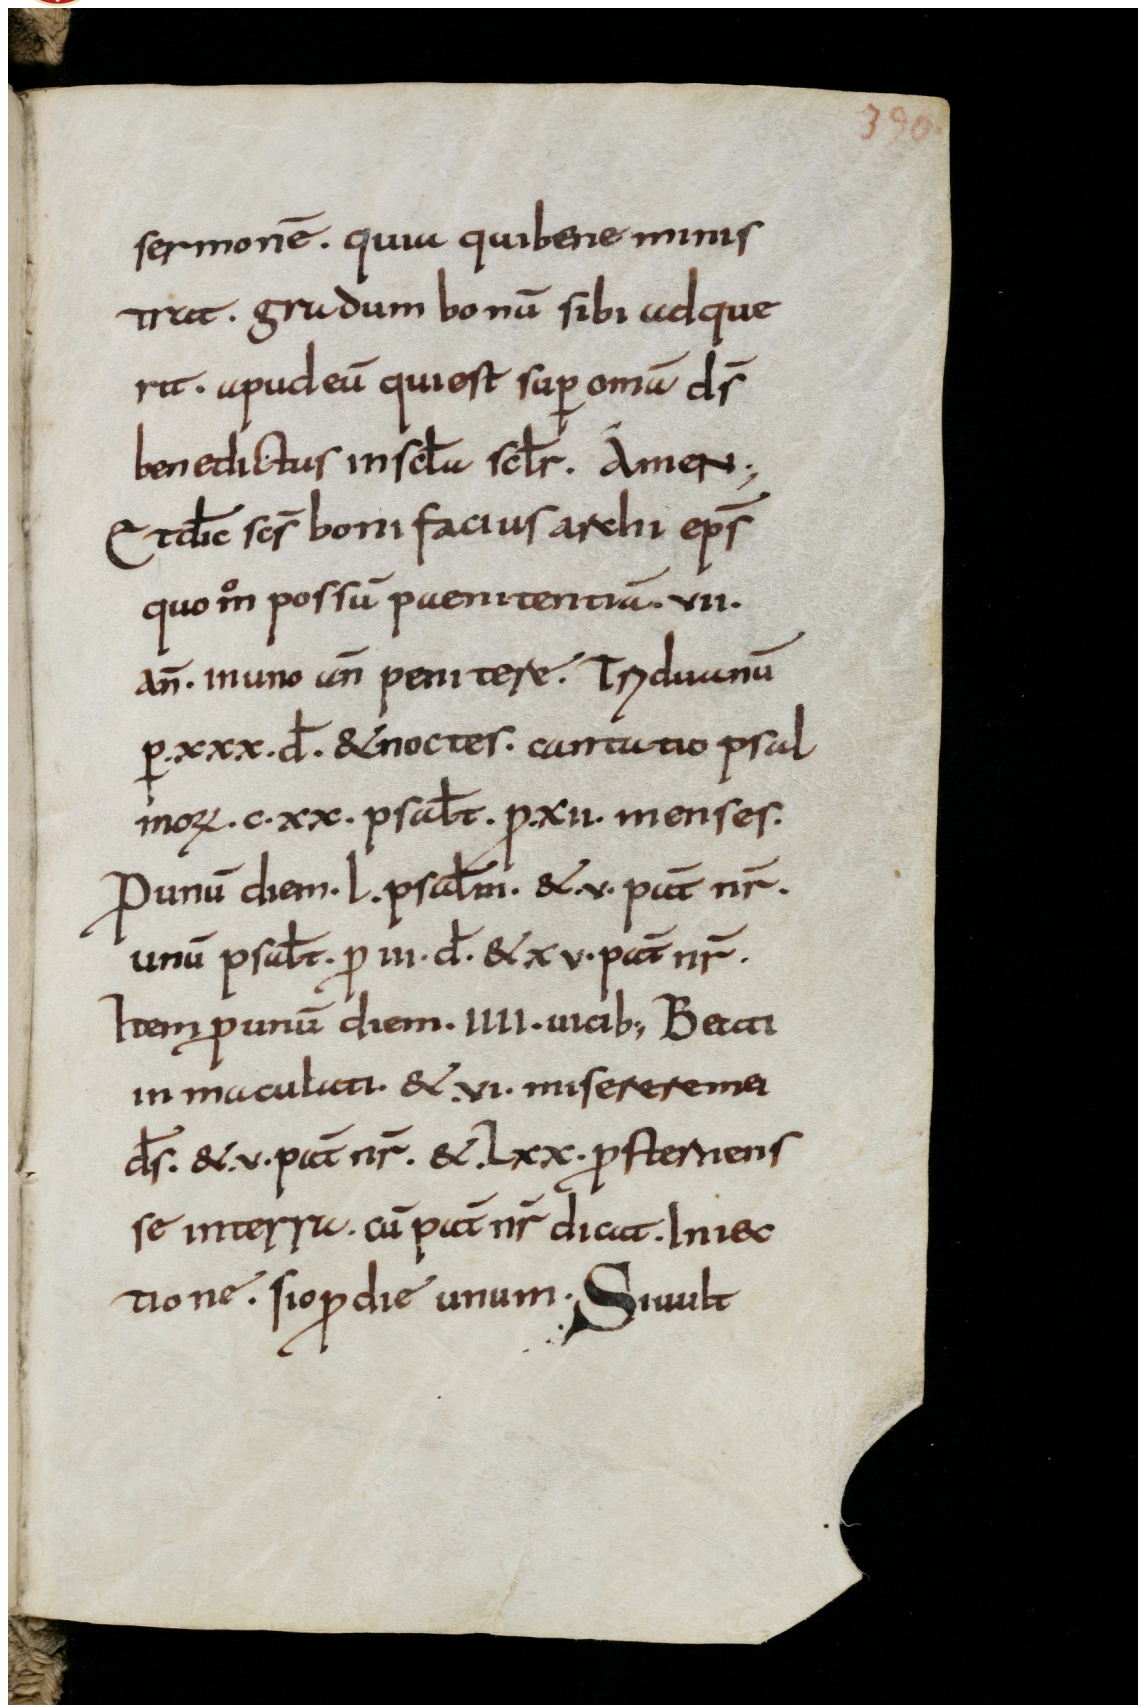 390
sermonē. quia quibene minis
trat. gradum bonū sibi adque
rit. apudeū quiest sup̱ omīa ds̄
benedictus inscl̄a scl̄r. Amen;
Et dic̄ scs̄ bonifacius archi eps̄
quom̊ possum̄ paenitentiā. vii.
an̄. inuno an̄ penitere. Triduanū
p̱. xxx. d̄. & noctes. cantatio psal
moꝝ. c. xx. psal̄t. ꝓ. xii. menses.
Ꝓunū diem. l. psal̄m. &. v. pat̄ nr̄.
unū psal̄t. ꝓ iii. d̄. & xv. pat̄ nr̄.
Item ꝓunū diem. IIII. uicib; Beati
inmaculati. &. vi. misereremei
ds̄. &. v. pat̄ nr̄. &. Lxx. ꝓsternens
se interra. cū pat̄ nr̄ dicat. Iniec
tione. sioꝓdie unum. Siuult